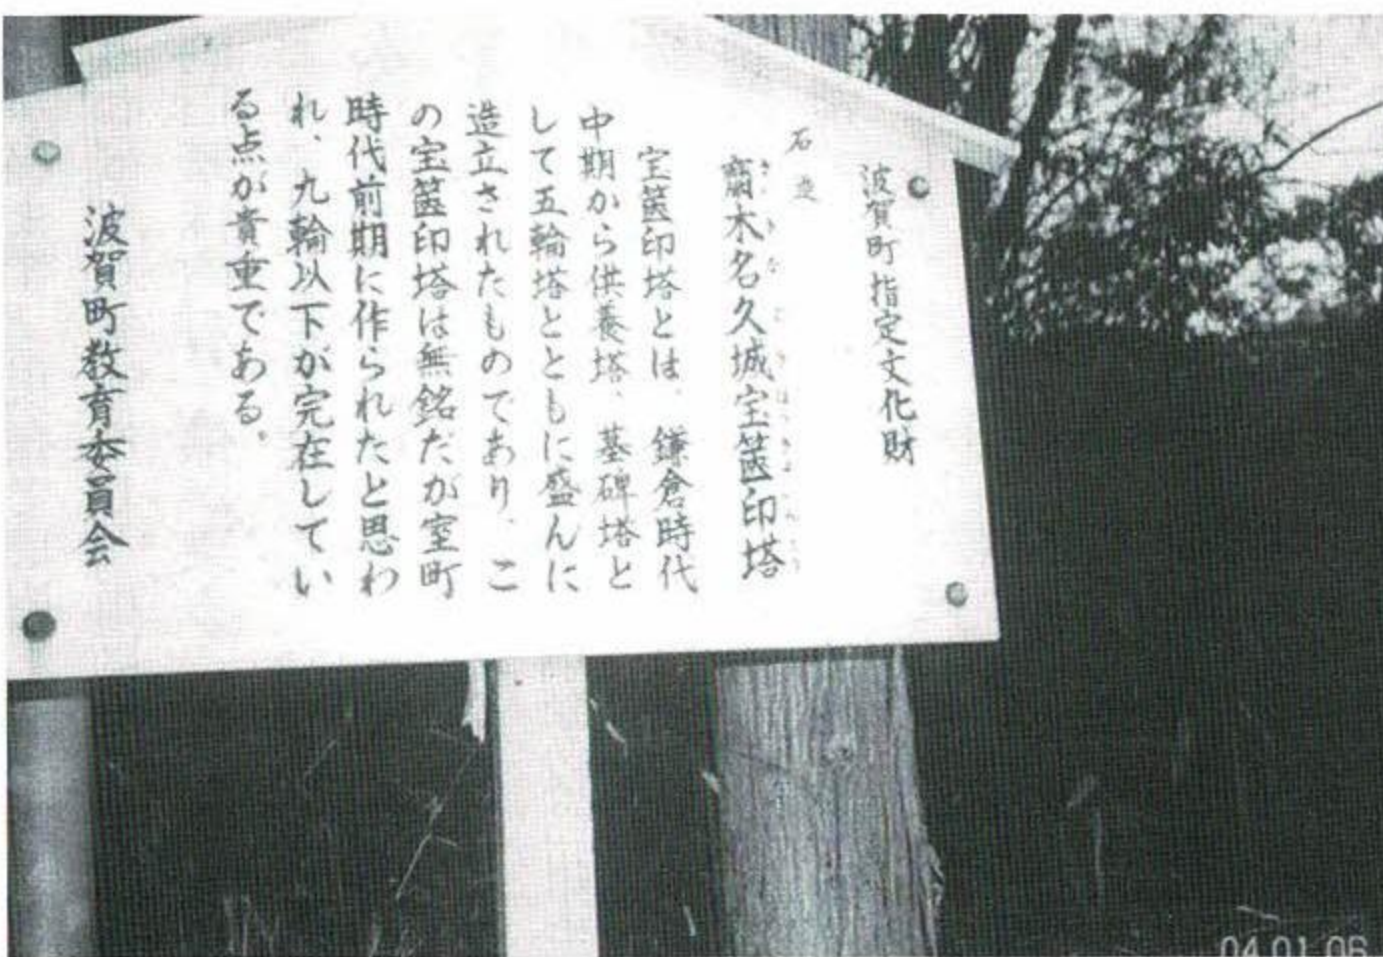 波賀町指定文化財
石造
齋木名久城宝篋印塔
宝篋印塔とは、鎌倉時代
中期から供養塔、墓碑塔と
して五輪塔とともに盛んに
造立されたものであり、こ
の宝篋印塔は無銘だが室町
時代前期に作られたと思わ
れ、九輪以下が完在してい
る点が貴重である。
波賀町教育委員会
04.01.06